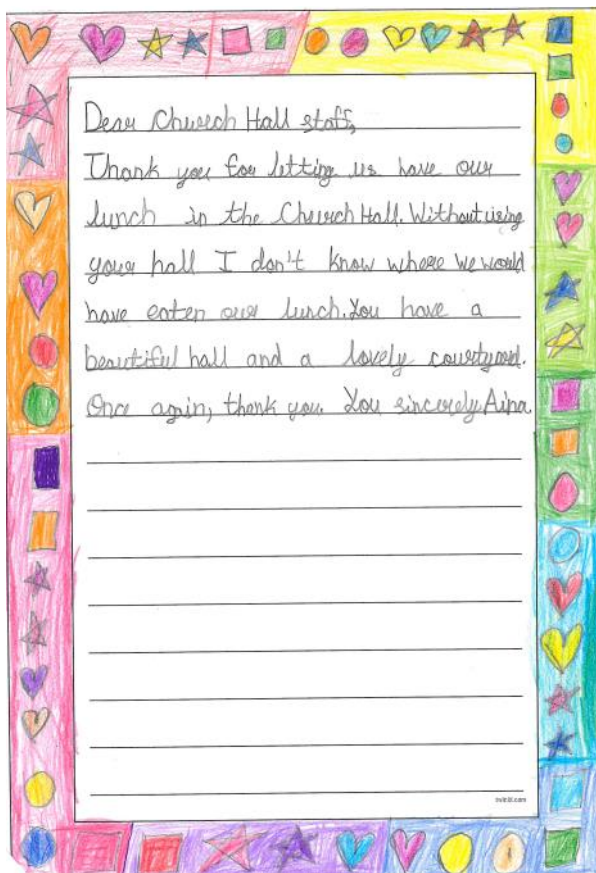 Dear Church Hall staff,
Thank you for letting us have our
lunch in the Church Hall. Without using
your hall I don't know where we would
have eaten our lunch. You have a
beautiful hall and a lovely courtyard.
Once again, thank you. You sincerely Aina.
twinkl.com